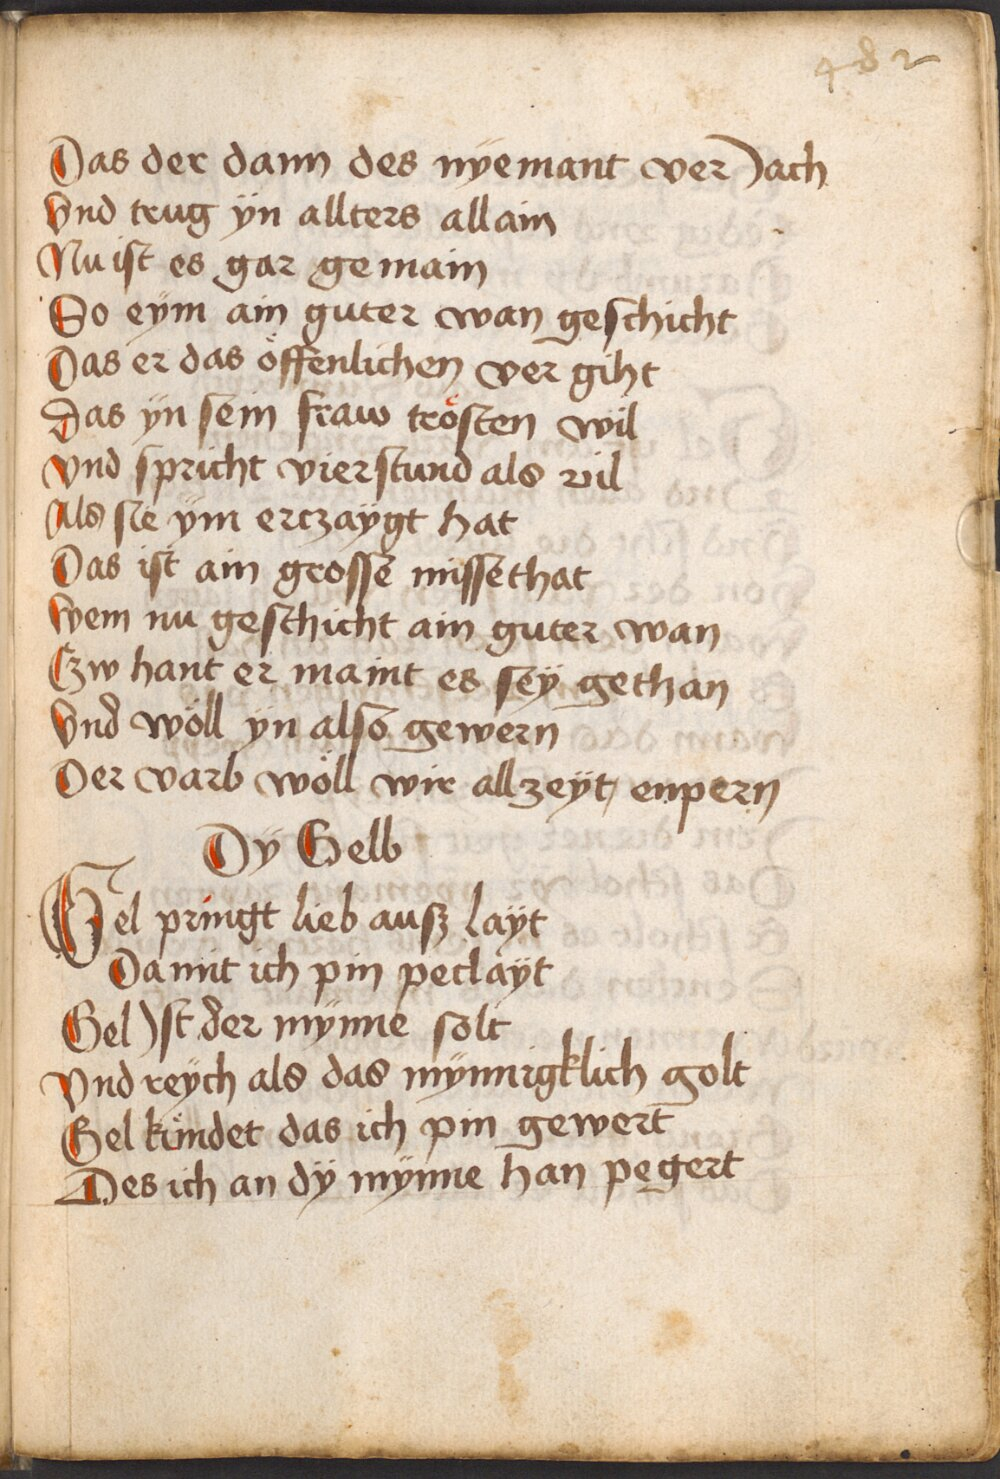 482
Das der dann des nÿemant ver Jach
Vnd trug ÿn allters allain
Nu ist es gar gemain
So eÿm ain guter wan geschicht
Das er das öffenlichen ver giht
Das ÿn sein fraw trösten wil
vnd spricht vierstund als vil
Als sie ÿm erczaÿgt hat
Das ist ain grosse missethat
Wem nu geschicht ain guter wan
Czw hant er maint es seÿ gethan
Vnd wöll ÿn also gewern
Der varb wöll wir allzeÿt enpern
Dÿ Gelb
Gel pringt lieb ausz laÿt
Damit ich pin peclaÿt
Gel Ist der mÿnne solt
Vnd reÿch als das mÿnnigklich golt
Gel kündet das ich pin gewert
Des ich an dÿ mÿnne han pegert